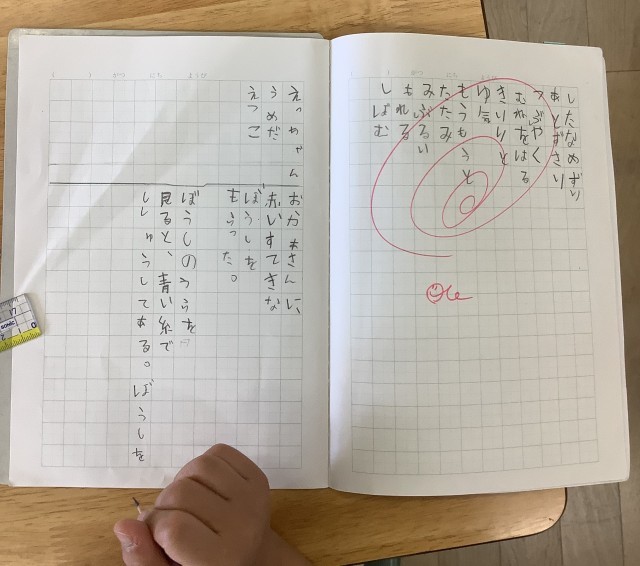 がつ にち ようび
したなめずり
あとずさり
つぶやく
むねをはる
きりりと
ゆ気
もうもうと
たたみ
みぶるい
もれる
しぼむ
がつ にち ようび
えっちゃん
うめだ
えつこ
おかあさんに、
赤いすてきな
ぼうしを
もらった。
ぼうしのうらを
見ると、青い糸で
ししゅうしてある。ぼうしを
17
SONIC